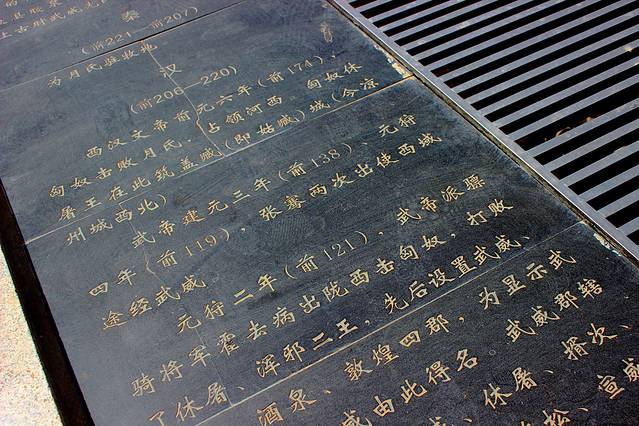 秦
(前221—前207)
为月氏驻牧地
汉
(前206—220)
西汉文帝前元六年(前174),
匈奴击败月氏,占领河西 匈奴休
屠王在此筑盖臧(即姑臧)城(今凉
州城西北)
武帝建元三年(前138)、元狩
四年(前119),张骞两次出使西域
途经武威
元狩二年(前121),武帝派骠
骑将军霍去病出陇西击匈奴,打败
了休屠、浑邪二王,先后设置武威、
酒泉、敦煌四郡,为显示武
威由此得名。武威郡辖
、休屠、揟次、
松、宣威